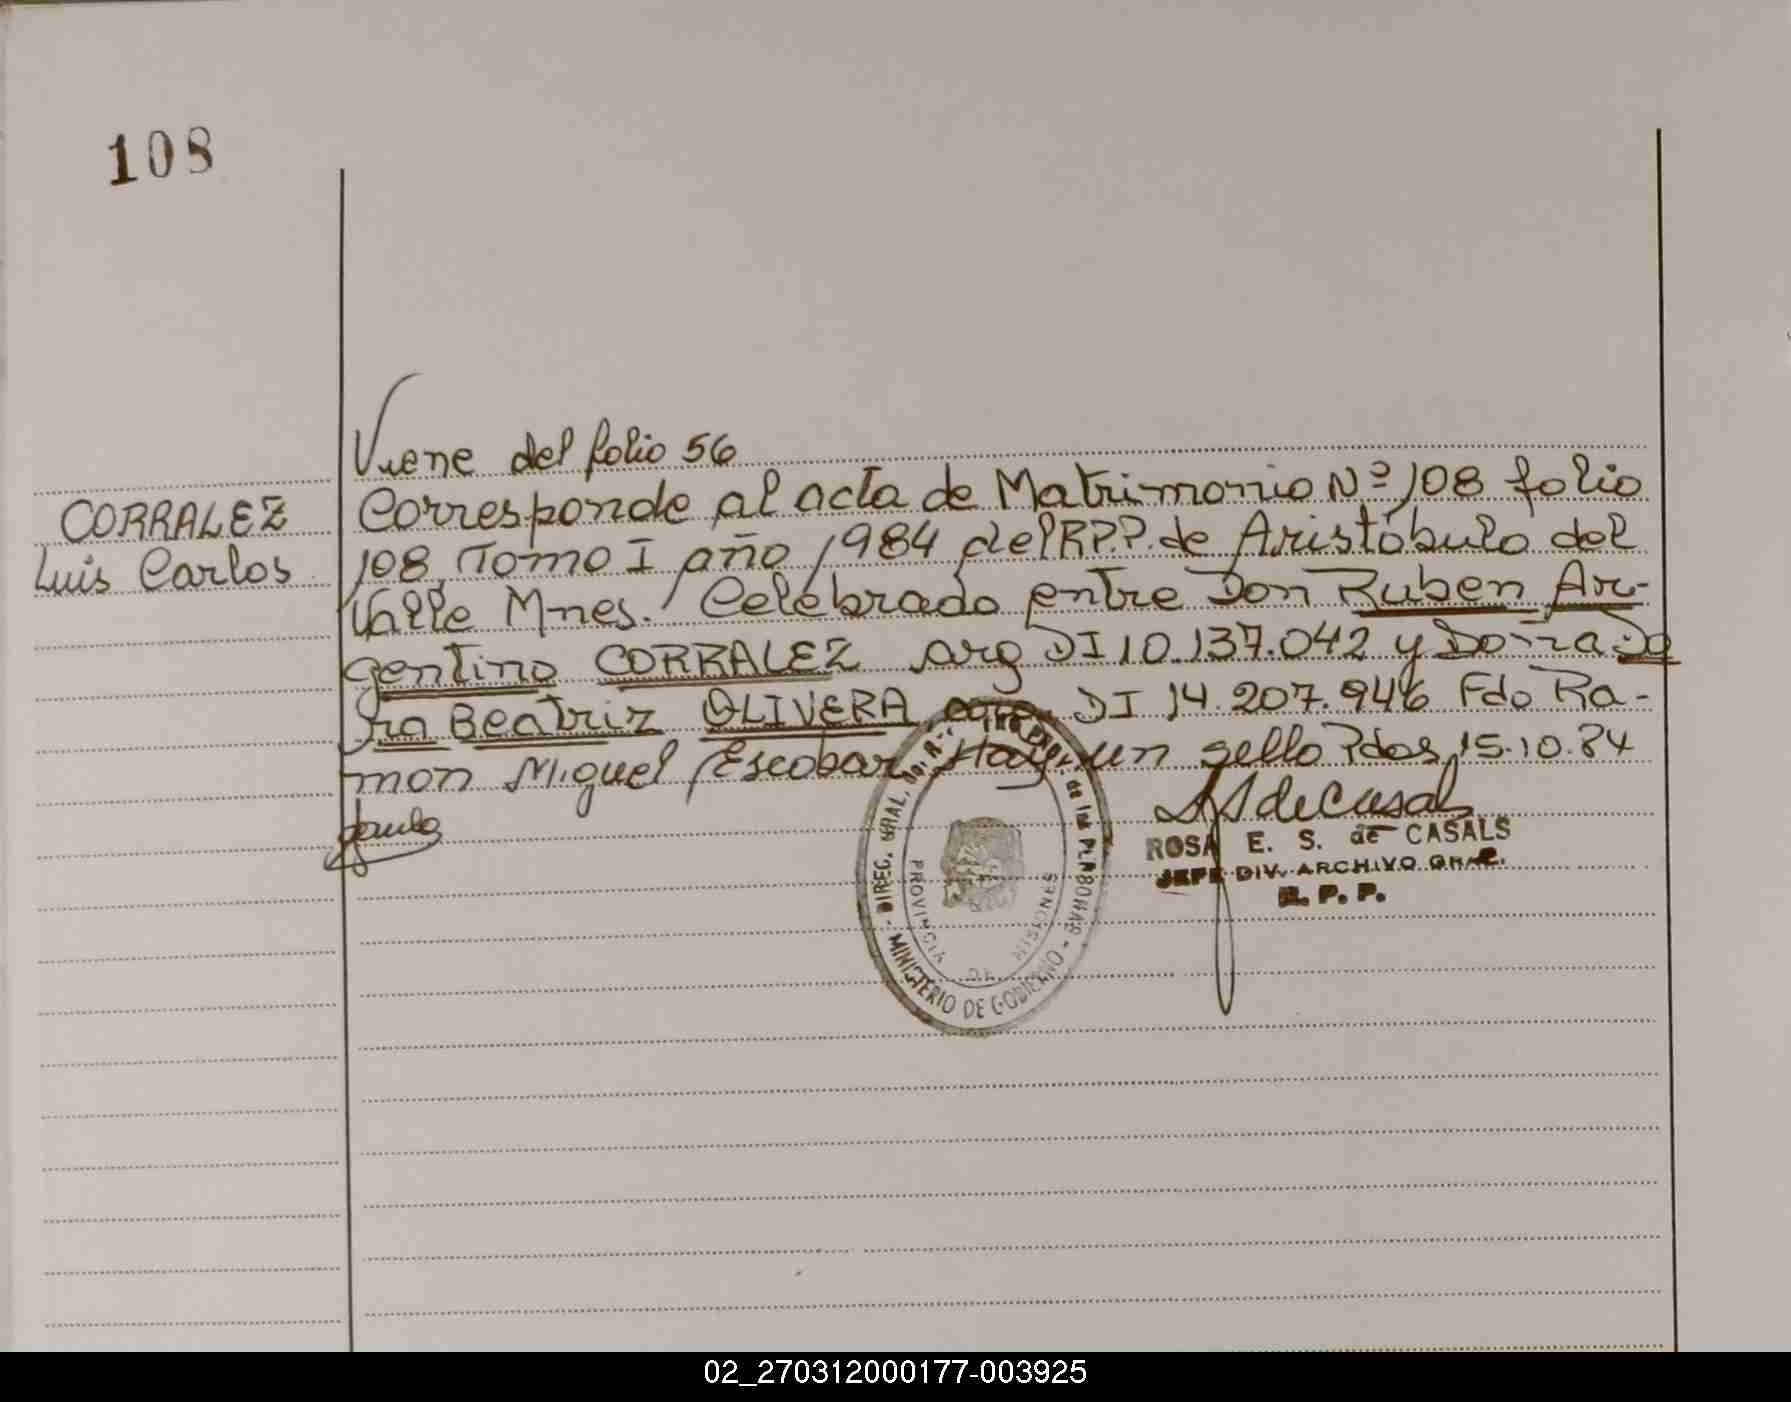 108
Viene del folio 56
CORRALEZ
Luis Carlos
Corresponde al acta de Matrimonio Nº 108 folio
108 Tomo I año 1984 del R.P.P. de Aristóbulo del
Valle Mnes. Celebrado entre Don Ruben Ar-
gentino CORRALEZ arg DI 10.137.042 y Doña
Beatriz OLIVERA arg. DI 14.207.946 Fdo Ra-
mon Miguel Escobar Hay un sello Pdas, 15.10.84
ROSA E. S. de CASALS
JEFE DIV. ARCHIVO GRAL.
R. P. P.
DIREC. GRAL. de las PERSONAS
MINISTERIO DE GOBIERNO
PROVINCIA DE MISIONES
02_270312000177-003925